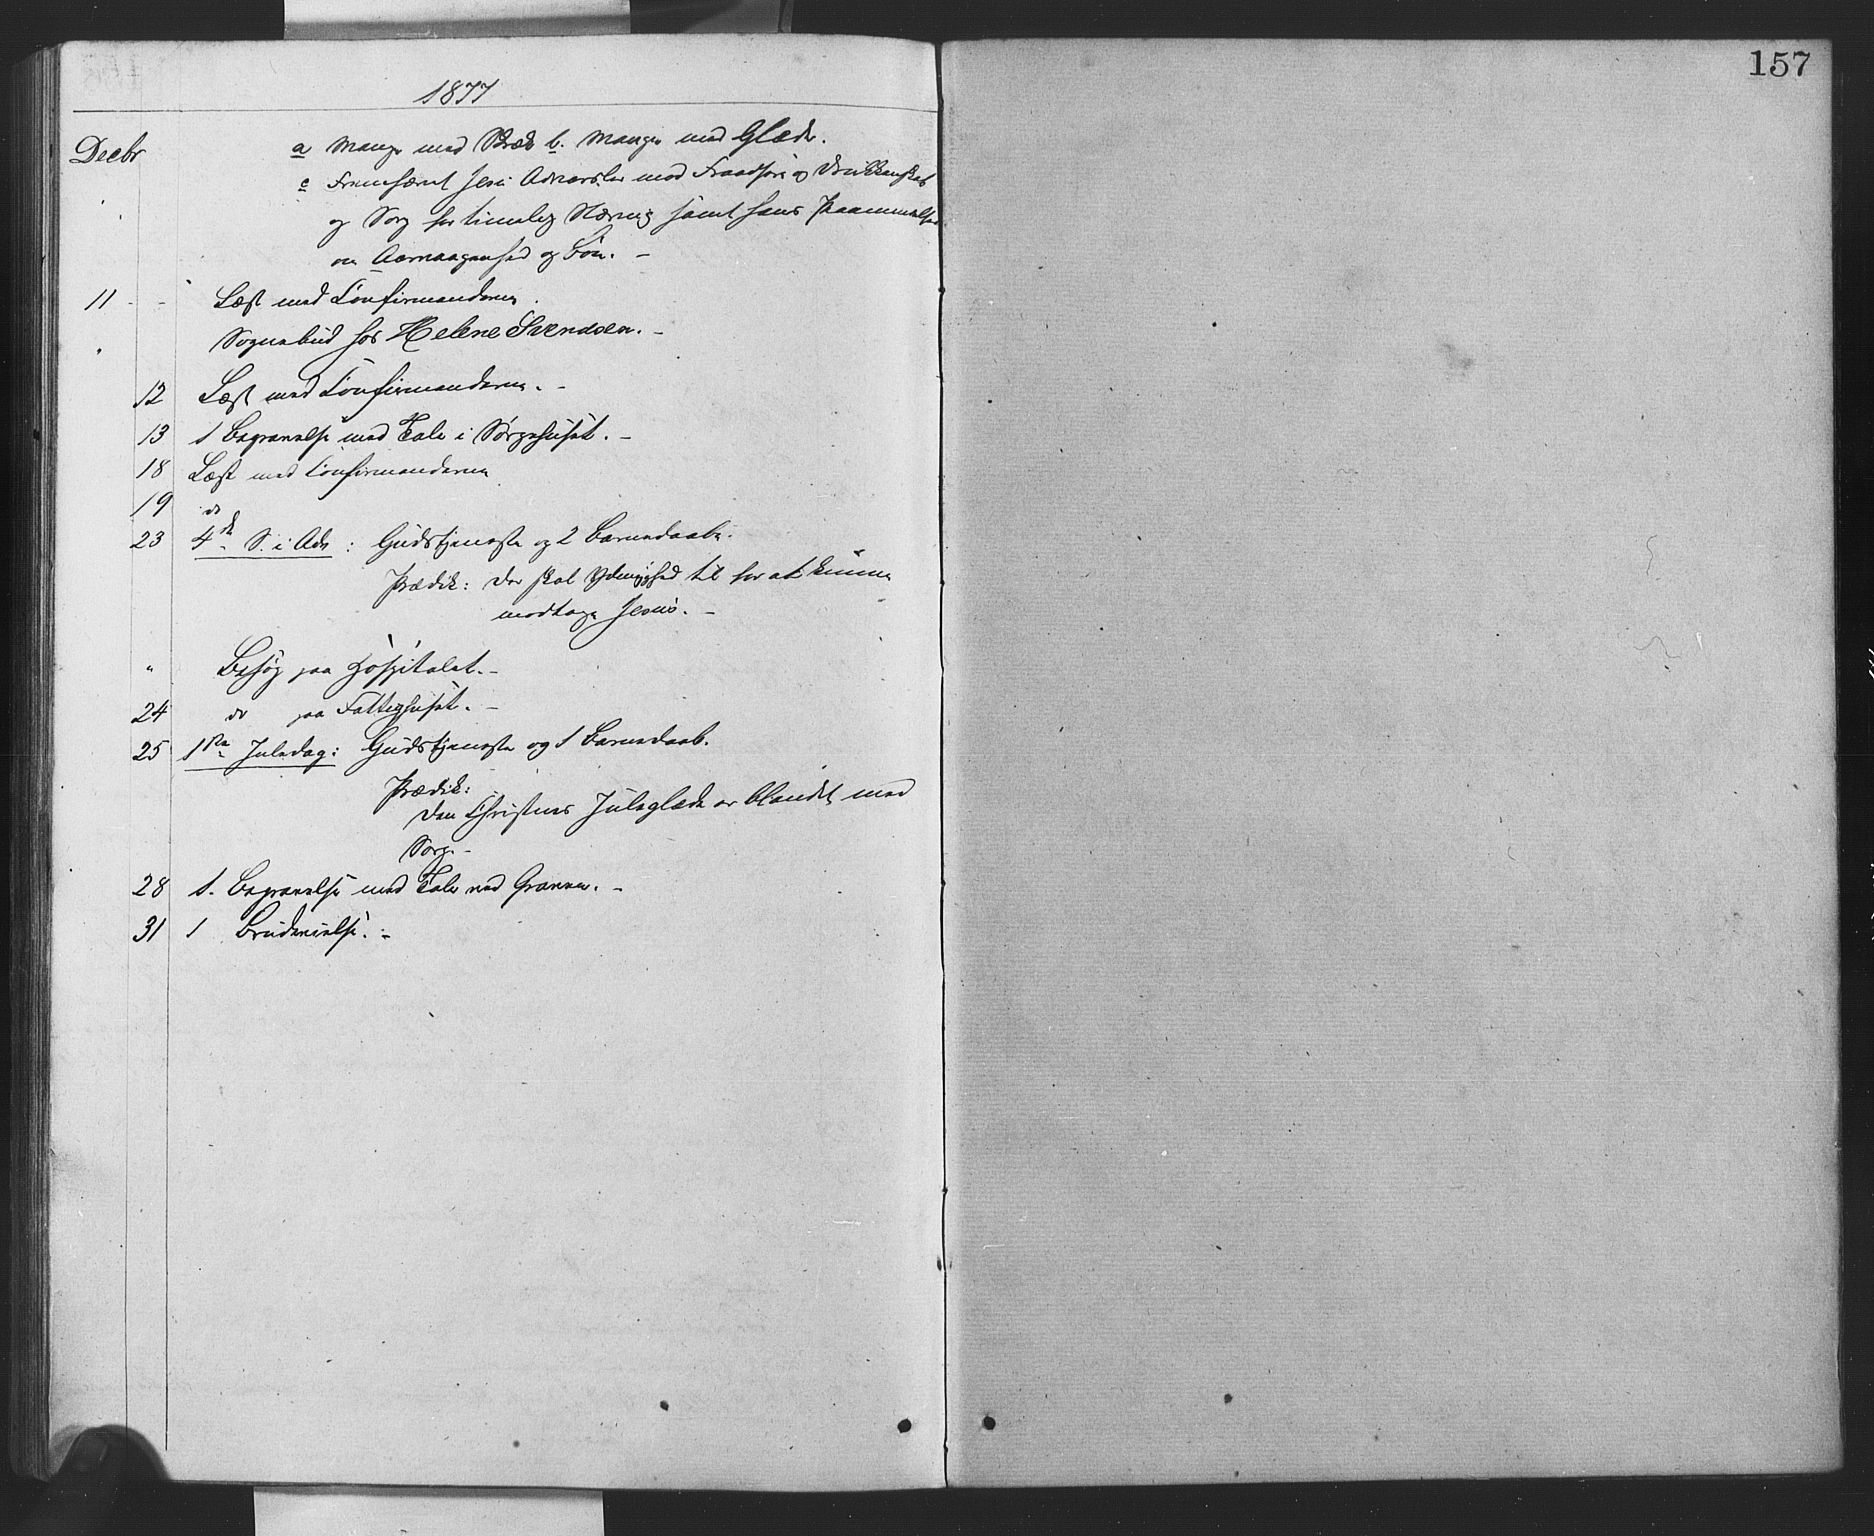 157
1877
Decbr a Mange med Skræk b. Mange med Glæde.
c Fremhævet Jesu Advarsler mod Fraadseri og Drukkenskab
og Sorg for timelig Næring samt hans Paamindelse
om Aarvaagenhed og Bøn. -
11 - - Læst med Confirmanderne.
" Sognebud hos Helene Svendsen. -
12 Læst med Confirmanderne. -
13 1 Begravelse med Tale i Sørgehuset. -
18 Læst med Confirmanderne
19 do
23 4de S. i Adv: Gudstjeneste og 2 Barnedaabe.
Prædik: Der skal Ydmyghed til for at kunne
modtage Jesus. -
" Besøg paa Hospitalet. -
24 do paa Fattighuset. -
25 1ste Juledag: Gudstjeneste og 1 Barnedaab.
Prædik:
Den Christnes Juleglæde er blandet med
Sorg. -
28 1. Begravelse med Tale ved Graven. -
31 1 Brudevielse. -